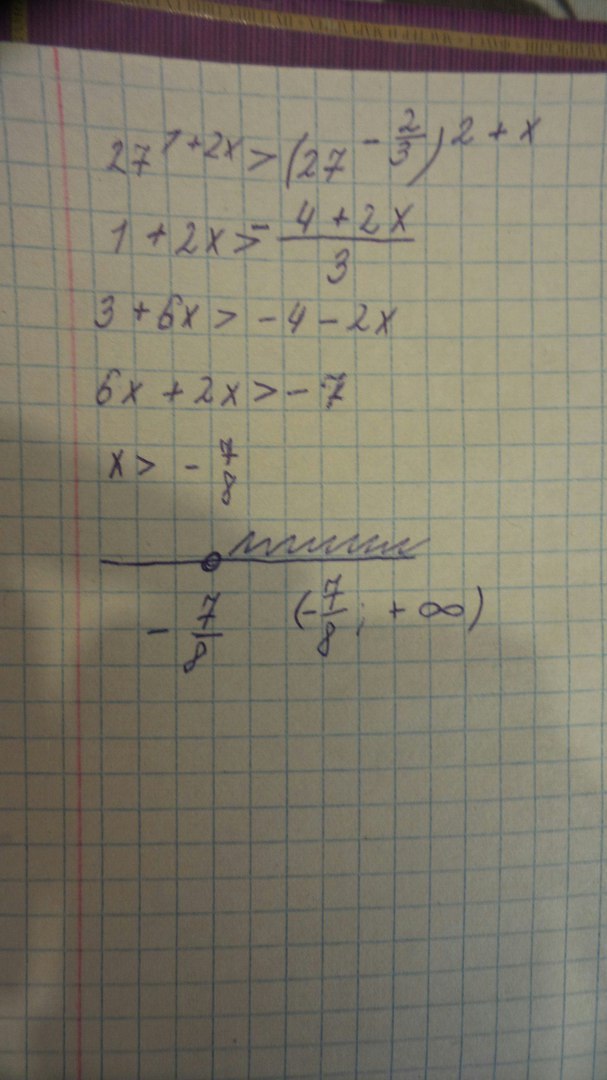 27^{1+2x} > (27^{-\frac{2}{3}})^{2+x}
1 + 2x > -\frac{4+2x}{3}
3 + 6x > -4 - 2x
6x + 2x > -7
x > -\frac{7}{8}
-\frac{7}{8} (-\frac{7}{8}; +∞)